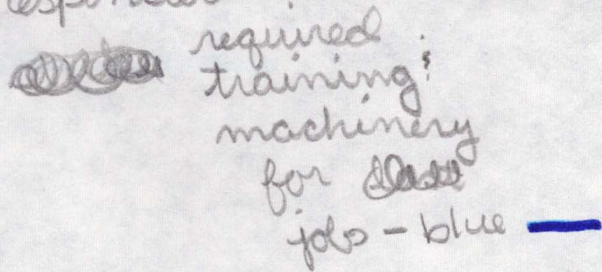 required
training;
machinery
for
jobs - blue